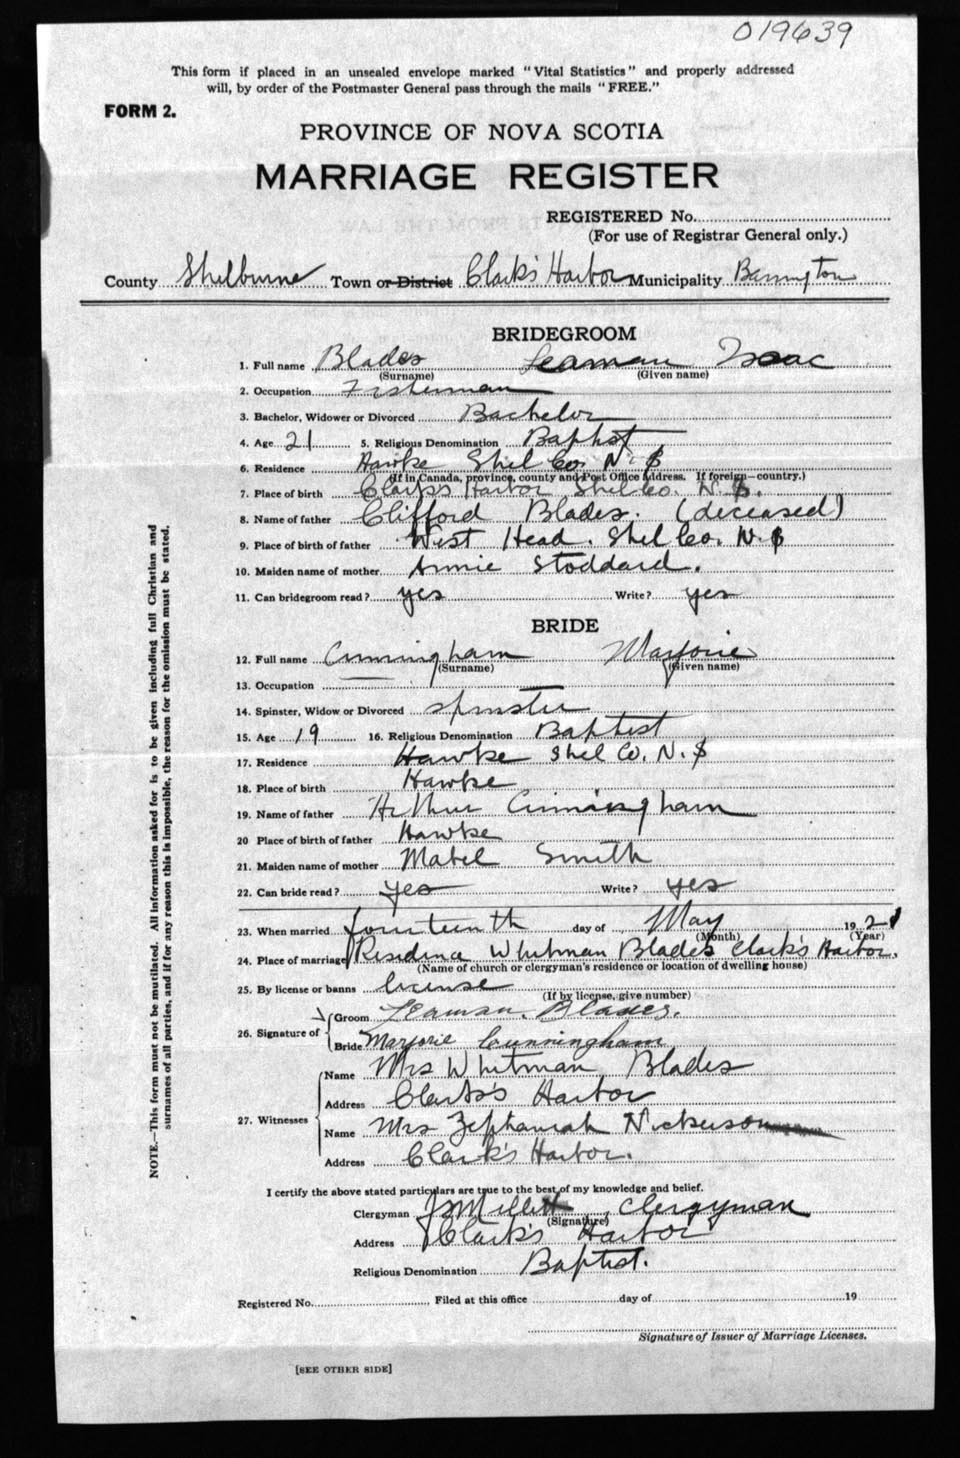 019639
This form if placed in an unsealed envelope marked "Vital Statistics" and properly addressed
will, by order of the Postmaster General pass through the mails "FREE."
FORM 2.
PROVINCE OF NOVA SCOTIA
MARRIAGE REGISTER
REGISTERED No.
(For use of Registrar General only.)
County Shelburne Town or District Clark's Harbor Municipality Barrington
BRIDEGROOM
1. Full name Blades Seaman Isaac
(Surname) (Given name)
2. Occupation Fisherman
3. Bachelor, Widower or Divorced Bachelor
4. Age 21 5. Religious Denomination Baptist
6. Residence Hawke Shel Co. N.S
(If in Canada, province, county and Post Office Address. If foreign—country.)
7. Place of birth Clark's Harbor Shel Co. N.S.
8. Name of father Clifford Blades. (deceased)
9. Place of birth of father West Head. Shel Co. N.S
10. Maiden name of mother Annie Stoddard.
11. Can bridegroom read? yes Write? yes
BRIDE
12. Full name Cunningham Marjorie
(Surname) (Given name)
13. Occupation
14. Spinster, Widow or Divorced spinster
15. Age 19 16. Religious Denomination Baptist
17. Residence Hawke Shel Co. N.S
18. Place of birth Hawke
19. Name of father Arthur Cunningham
20 Place of birth of father Hawke
21. Maiden name of mother Mabel Smith
22. Can bride read? yes Write? yes
23. When married fourteenth day of May 1921
(Month) (Year)
24. Place of marriage Residence Whitman Blades Clark's Harbor.
(Name of church or clergyman's residence or location of dwelling house)
25. By license or banns license
(If by license, give number)
26. Signature of
Groom Seaman. Blades.
Bride Marjorie Cunningham
27. Witnesses
Name Mrs Whitman Blades
Address Clark's Harbor
Name Mrs Zephaniah Nickerson
Address Clark's Harbor.
I certify the above stated particulars are true to the best of my knowledge and belief.
Clergyman Clergyman
(Signature)
Address Clark's Harbor
Religious Denomination Baptist.
Registered No. Filed at this office day of 19
Signature of Issuer of Marriage Licenses.
[SEE OTHER SIDE]
NOTE.—This form must not be mutilated. All information asked for is to be given including full Christian and
surnames of all parties, and if for any reason this is impossible, the reason for the omission must be stated.